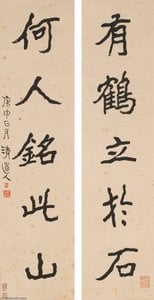 有鶴立於石
何人銘此山
庚申七月 清道人